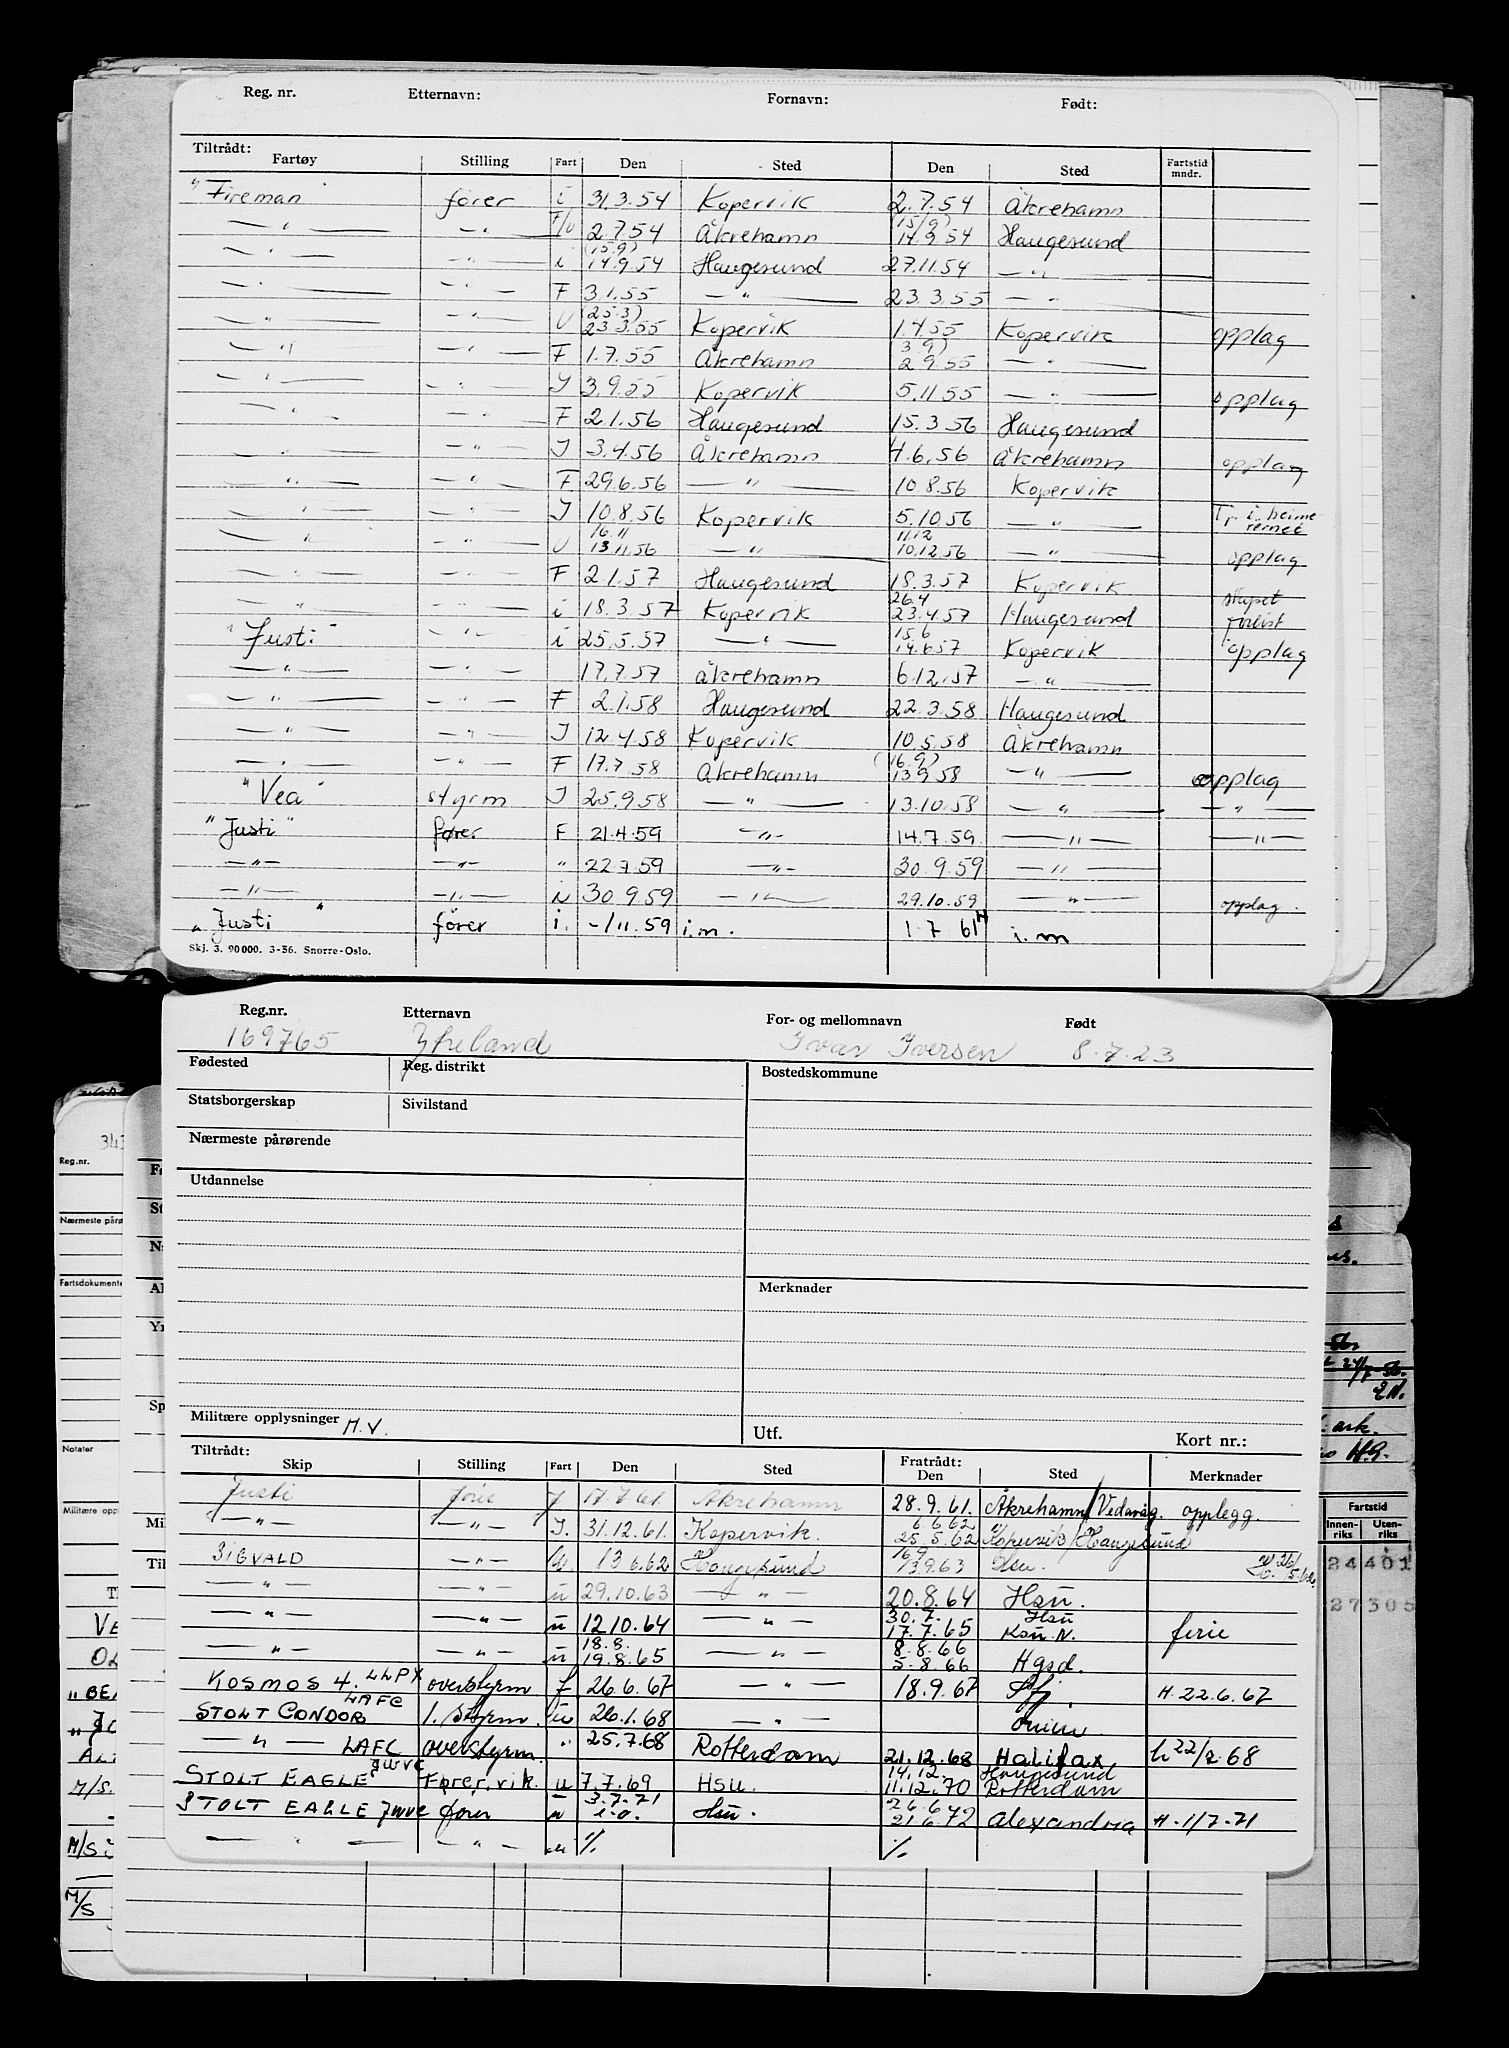 Reg. nr. Etternavn: Fornavn: Født:
Tiltrådt:
Fartøy Stilling Fart Den Sted Den Sted Fartstid mndr.
"Fireman" fører i 31.3.54 Kopervik 2.7.54 Åkrehamn
— " — — " — F/U 2.7.54 Åkrehamn (15/9) 14.9.54 Haugesund
— " — — " — i (15.9) 14.9.54 Haugesund 27.11.54 — " —
— " — — " — F 3.1.55 — " — 23.3.55 — " —
— " — — " — U (25.3) 23.3.55 Kopervik 1.4.55 Kopervik opplag
— " — — " — F 1.7.55 Åkrehamn (3.9) 2.9.55 — " —
— " — — " — I 3.9.55 Kopervik 5.11.55 — " — opplag
— " — — " — F 2.1.56 Haugesund 15.3.56 Haugesund
— " — I 3.4.56 Åkrehamn 4.6.56 Åkrehamn opplag
— " — — " — F 29.6.56 — " — 10.8.56 Kopervik
— " — — " — I 10.8.56 Kopervik 5.10.56 — " — Tr. i heime
— " — — " — U 16.11 13.11.56 — " — 11.12 10.12.56 — " — opplag
— " — — " — F 2.1.57 Haugesund 18.3.57 Kopervik
— " — — " — i 18.3.57 Kopervik 26.4 23.4.57 Haugesund skipet forlist
"Justi" — " — i 25.5.57 — " — 15.6 14.6.57 Kopervik opplag
— " — — " — 17.7.57 Åkrehamn 6.12.57 — " —
— " — — " — F 2.1.58 Haugesund 22.3.58 Haugesund
— " — — " — I 12.4.58 Kopervik 10.5.58 Åkrehamn
— " — — " — F 17.7.58 Åkrehamn (16.9) 13.9.58 — " — opplag
"Vea" styrm I 25.9.58 — " — 13.10.58 — " — — " —
"Justi" fører F 21.4.59 — " — 14.7.59 — " — — " —
— " — — " — " 22.7.59 — " — 30.9.59 — " —
— " — — " — i 30.9.59 — " — 29.10.59 — " — opplag.
"Justi" fører i. -/11.59 i.m. 1.7 61 i.m
Skj. 3. 90 000. 3-56. Snorre-Oslo.
Reg.nr. Etternavn For- og mellomnavn Født
169765 Ytreland Ivar Iversen 8.7.23
Fødested Reg. distrikt Bostedskommune
Statsborgerskap Sivilstand
Nærmeste pårørende
Utdannelse
Merknader
Militære opplysninger H.V. Utf. Kort nr.:
Tiltrådt: Fratrådt:
Skip Stilling Fart Den Sted Den Sted Merknader
Justi 17.7.61 Åkrehamn 28.9.61. Åkrehamn/Vedavåg. opplegg.
— " — — " — I. 31.12.61. Kopervik. 6.6.62 25.5.62 Kopervik/Haugesund
SIGVALD — " — 13 6.62 Haugesund 16.9 13.9.63 Hsu.
— " — — " — u 29.10.63 — " — 20.8.64 Hsu.
— " — — " — u 12.10.64 — " — 30.7. 17.7.65 Hsu ferie
— " — — " — u 18.8. 19.8.65 — " — 8.8.66 5.8.66 Hgsd.
KOSMOS 4. LLPX overstyrm f 26.6.67 — " — 18.9.67 Sfj. H. 22.6.67
STOLT CONDOR LAFC 1. styrm. u 26.1.68 — " —
— " — LAFC overstyrm. " 25.7.68 Rotterdam 21.12.68 Halifax h 22/2.68
STOLT EAGLE JWVC Fører.vik. u 7.7.69 Hsu. 14.12. 11.12.70 Haugesund Rotterdam
STOLT EAGLE Jwvc fører u 3.7.71 Hsu. 26.6 21.6.72 Alexandria H.1/7.71
— " — — " — u ./. ./.
Reg.nr.
Nærmeste pårø
Fartsdokumente
Notater
Militære opp
Fartstid
Innen-riks Uten-riks
24401
27305
M/S.
M/S
M/S